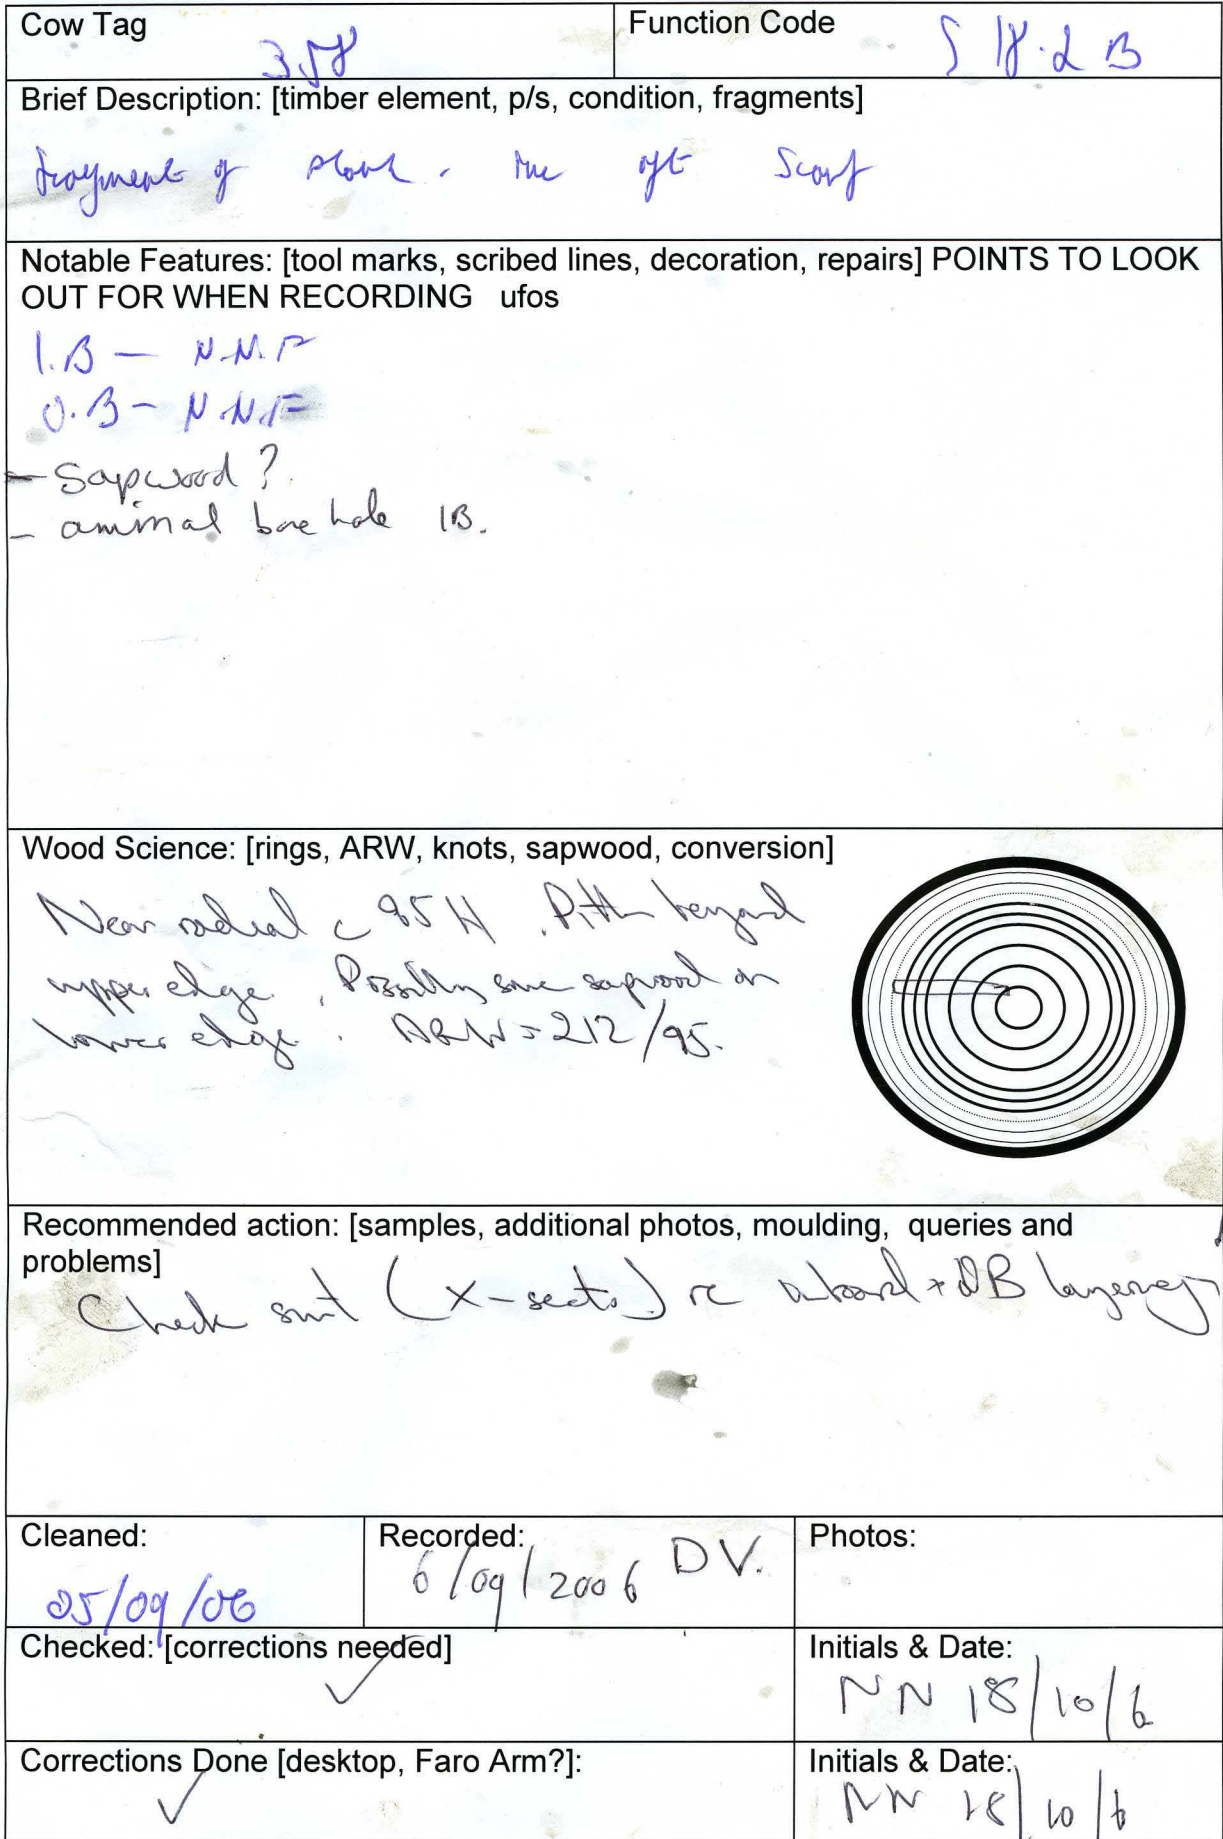 Cow Tag
358
Function Code
S 18.2 B
Brief Description: [timber element, p/s, condition, fragments]
fragment of plank. the aft scarf
Notable Features: [tool marks, scribed lines, decoration, repairs] POINTS TO LOOK
OUT FOR WHEN RECORDING ufos
I.B — N.N.F
O.B – N.N.F
- Sapwood?
- animal bore hole IB.
Wood Science: [rings, ARW, knots, sapwood, conversion]
Near radial c 95 H. Pith beyond
upper edge. Possibly some sapwood on
lower edge. ARW = 212/95.
Recommended action: [samples, additional photos, moulding, queries and
problems]
Check (x-secto) re inboard + OB layering
Cleaned:
05/09/06
Recorded:
6/09/2006 DV.
Photos:
Checked: [corrections needed]
✓
Initials & Date:
NN 18/10/6
Corrections Done [desktop, Faro Arm?]:
✓
Initials & Date:
NN 18/10/6